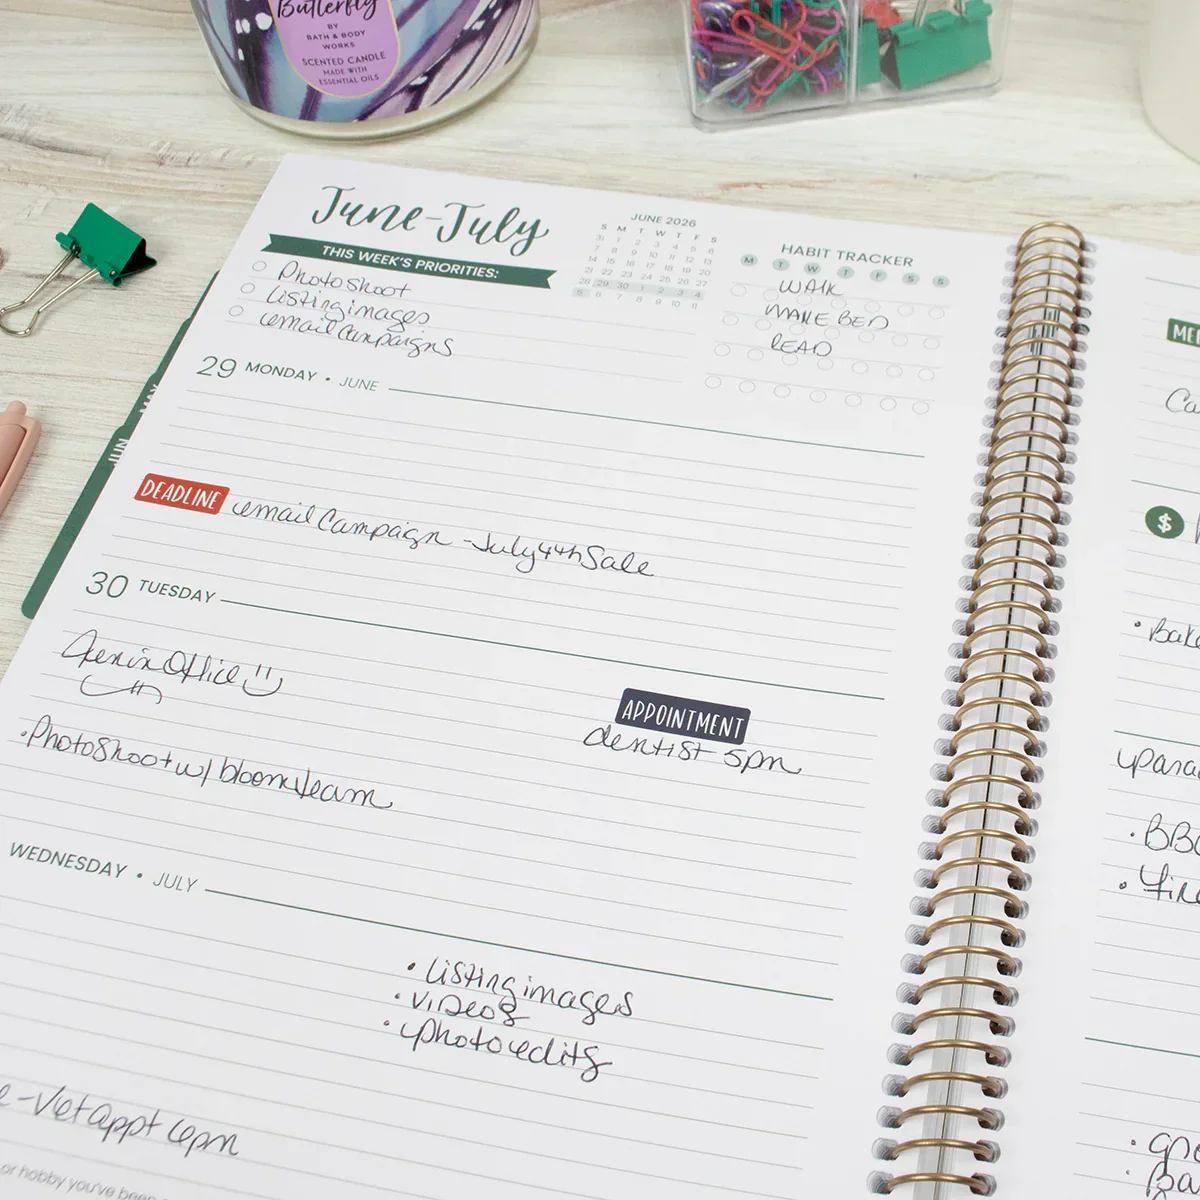 Butterfly
BY
BATH & BODY
WORKS
SCENTED CANDLE
MADE WITH
ESSENTIAL OILS
June-July
THIS WEEK'S PRIORITIES:
Photo shoot
Listing images
email campaigns
JUNE 2026
S M T W T F S
31 1 2 3 4 5 6
7 8 9 10 11 12 13
14 15 16 17 18 19 20
21 22 23 24 25 26 27
28 29 30 1 2 3 4
5 6 7 8 9 10 11
HABIT TRACKER
M T W T F S S
WALK
MAKE BED
READ
MAY
JUN
29 MONDAY • JUNE
DEADLINE email Campaign - July 4th Sale
30 TUESDAY
in Office
APPOINTMENT
dentist 5pm
• Photoshoot w/ bloom team
WEDNESDAY • JULY
• Listing images
• videos
• photo edits
- Vet appt 6pm
or hobby you've been
$
• Bake
• BB
• Fire